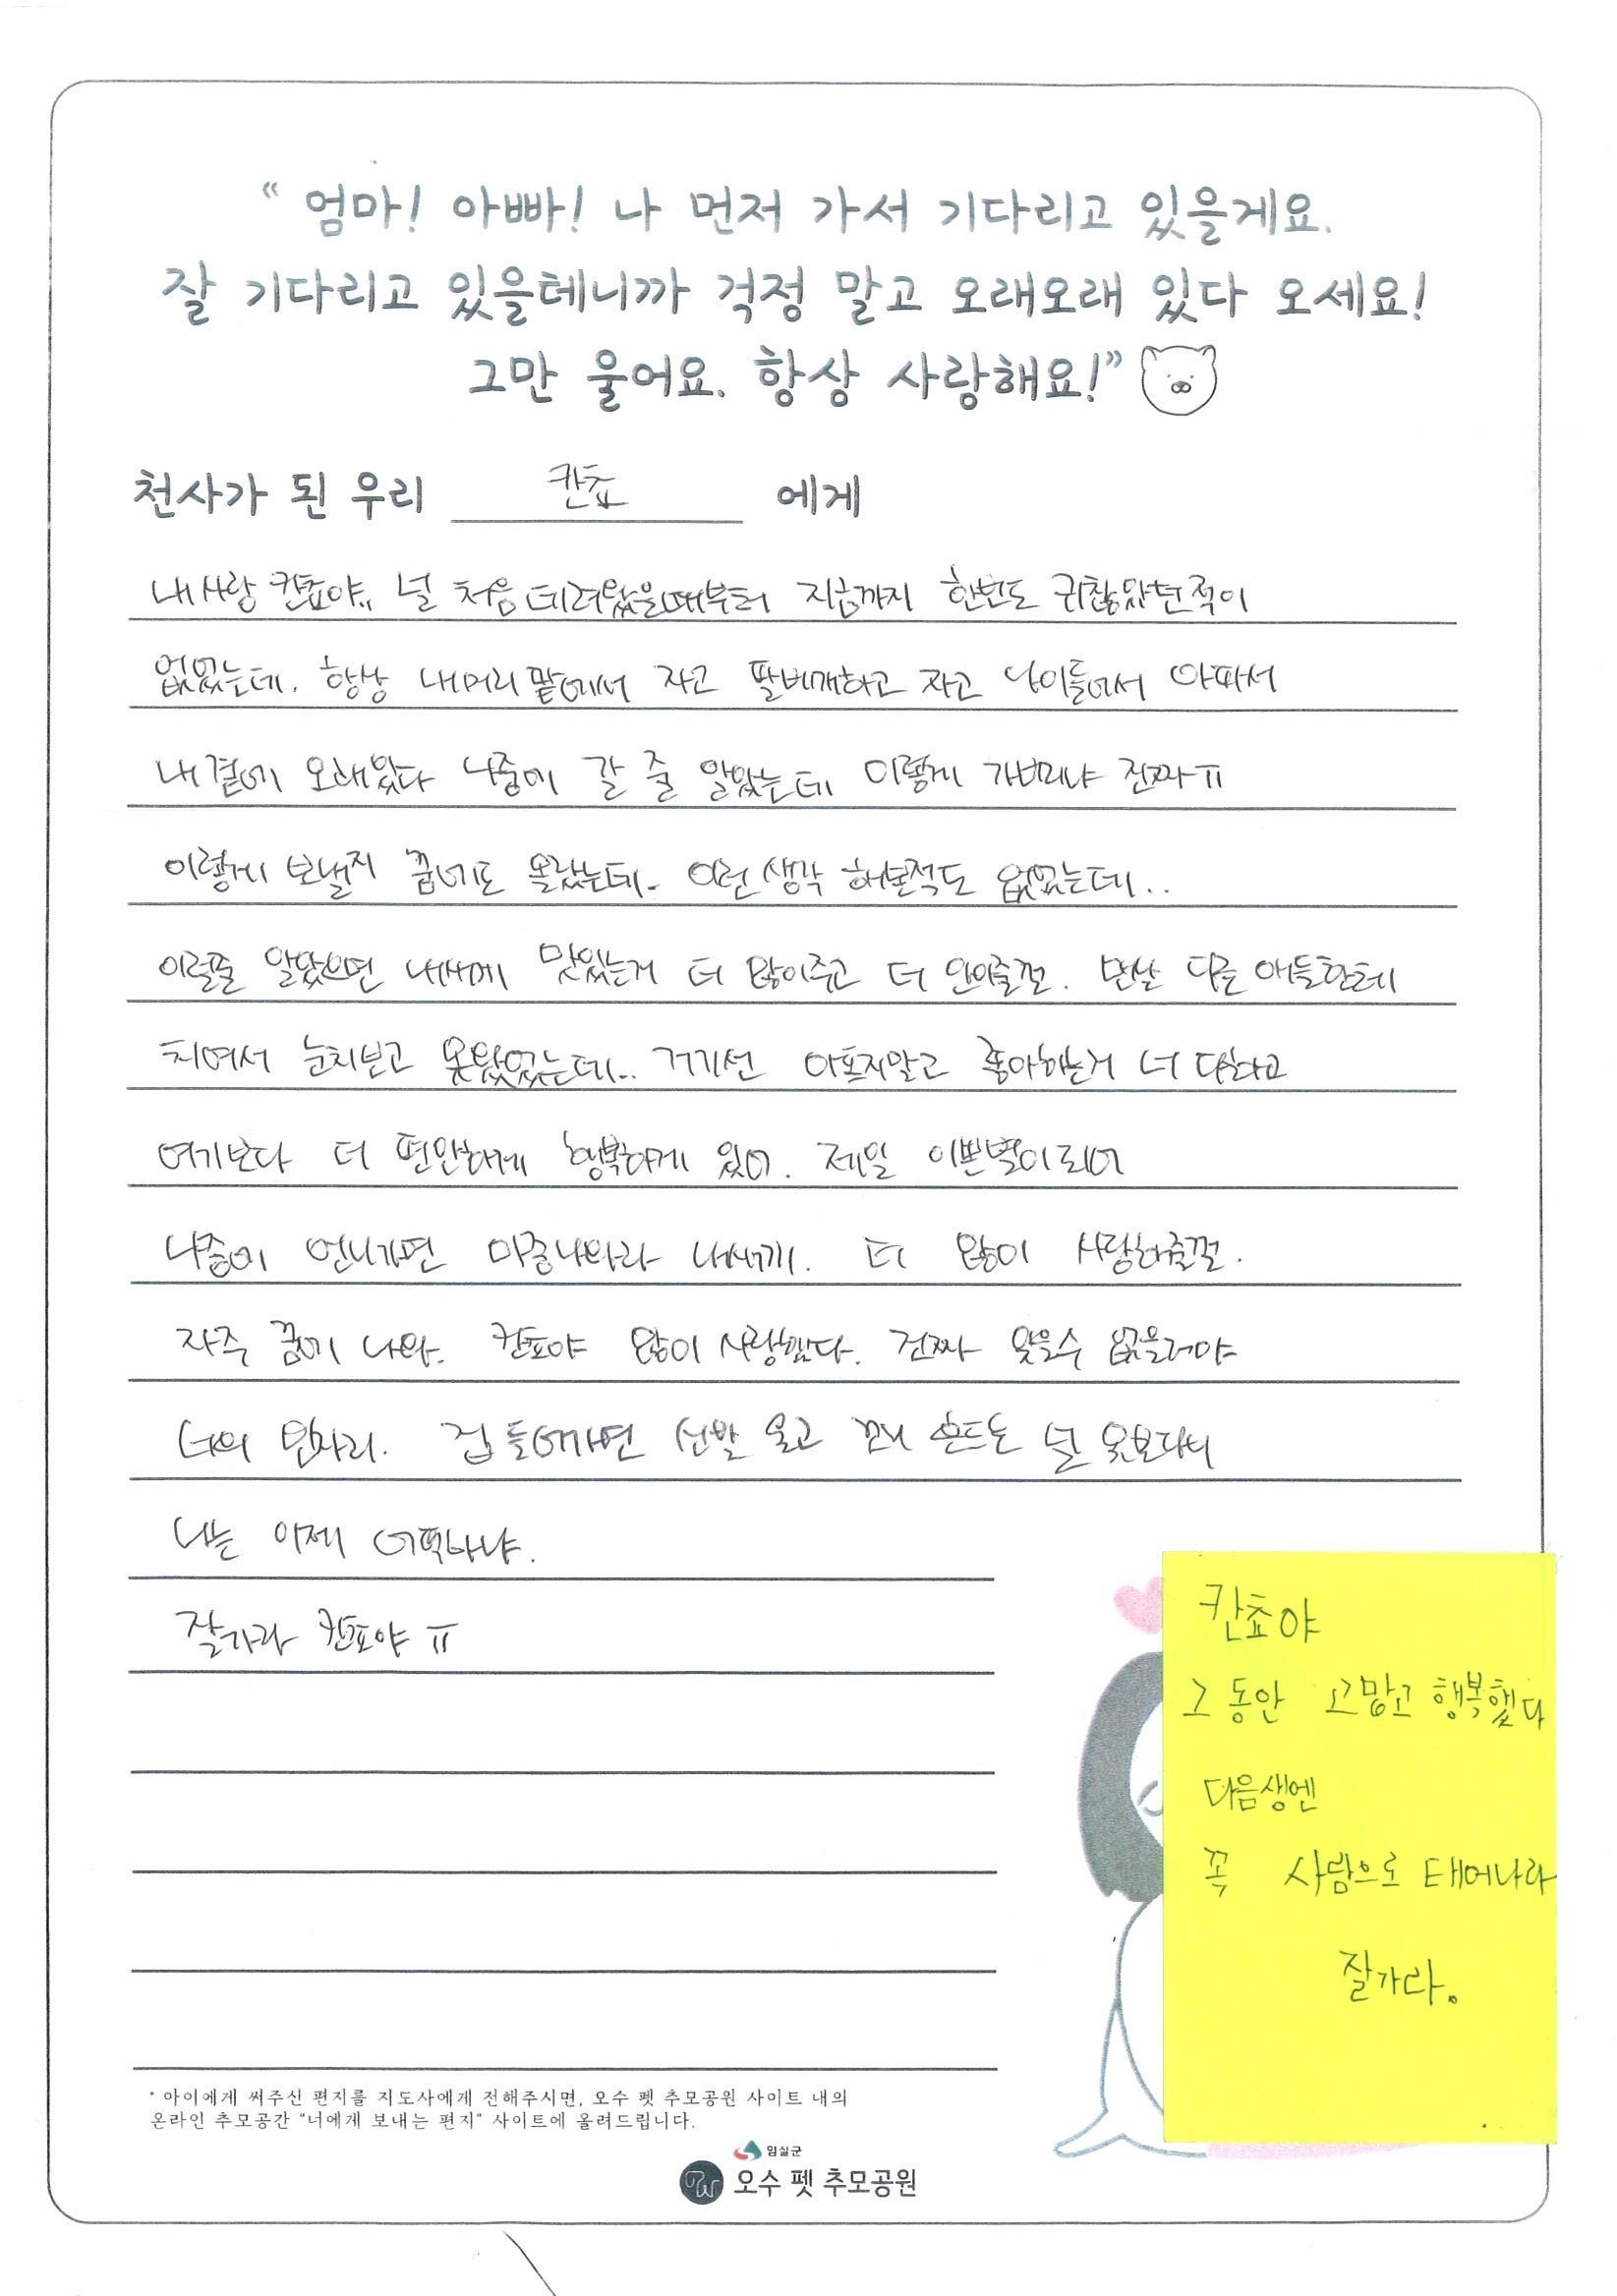 “ 엄마! 아빠! 나 먼저 가서 기다리고 있을게요.
잘 기다리고 있을테니까 걱정 말고 오래오래 있다 오세요!
그만 울어요. 항상 사랑해요!”
천사가 된 우리 칸쵸 에게
내사랑 칸쵸야.. 널 처음 데려왔을때부터 지금까지 한번도 귀찮았던적이
없었는데. 항상 내머리맡에서 자고 팔베개하고 자고 나이들어서 아파서
내곁에 오래있다 나중에 갈 줄 알았는데 이렇게 가버리냐 진짜ㅠ
이렇게 보낼지 꿈에도 몰랐는데. 이런생각 해본적도 없었는데..
이럴줄 알았으면 내새끼 맛있는거 더 많이주고 더 안아줄껄. 맨날 다른애들한테
치여서 눈치보고 못왔었는데.. 거기선 아프지말고 좋아하는거 너 다하고
여기보다 더 편안하게 행복하게 있어. 제일 이쁜별이되어
나중에 언니가면 마중나와라 내새끼. 더 많이 사랑해줄껄.
자주 꿈에 나와. 칸쵸야 많이 사랑했다. 진짜 잊을수 없을거야
너의 빈자리. 집 들어가면 신발 물고 꼬리 흔드는 널 못보다니
나는 이제 어떡하냐.
잘가라 칸쵸야 ㅠ
칸쵸야
그동안 고맙고 행복했다
다음생엔
꼭 사람으로 태어나라
잘가라.
* 아이에게 써주신 편지를 지도사에게 전해주시면, 오수 펫 추모공원 사이트 내의
온라인 추모공간 "너에게 보내는 편지" 사이트에 올려드립니다.
임실군
오수 펫 추모공원